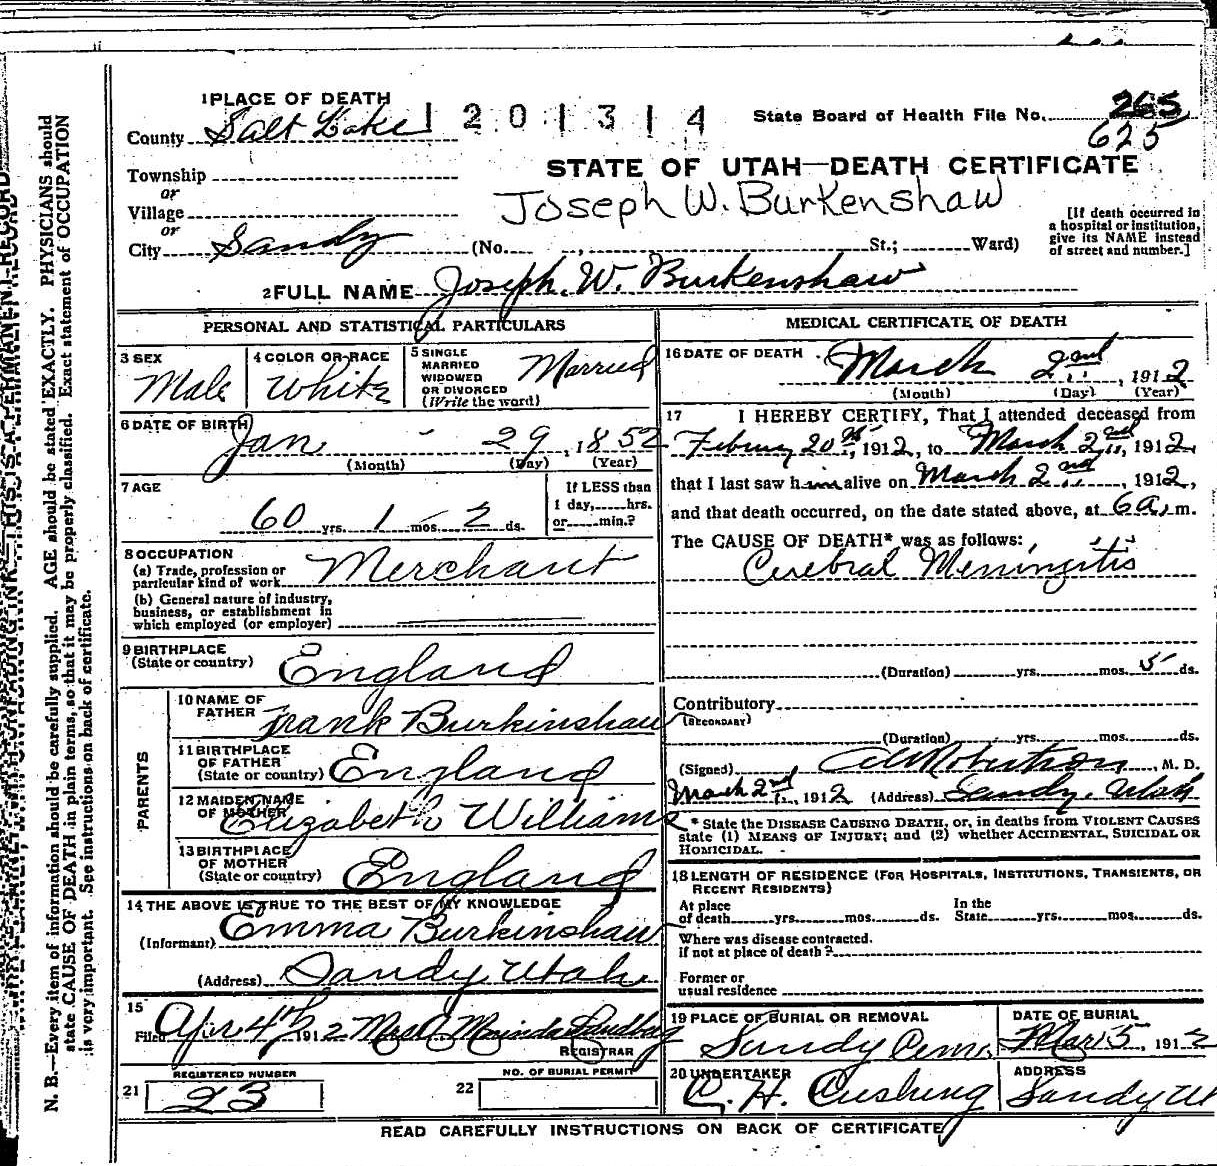 1 PLACE OF DEATH
County Salt Lake
1201314
State Board of Health File No. 265
625
STATE OF UTAH—DEATH CERTIFICATE
Township
or
Village
or
City Sandy (No. , St.; Ward)
Joseph W. Burkenshaw
[If death occurred in
a hospital or institution,
give its NAME instead
of street and number.]
2 FULL NAME Joseph. W. Burkenshaw
PERSONAL AND STATISTICAL PARTICULARS
3 SEX Male
4 COLOR OR RACE White
5 SINGLE
MARRIED
WIDOWED
OR DIVORCED
(Write the word)
Married
6 DATE OF BIRTH Jan - 29, 1852
(Month) (Day) (Year)
7 AGE
60 yrs. 1 mos. 2 ds.
If LESS than
1 day, hrs.
or min.?
8 OCCUPATION
(a) Trade, profession or
particular kind of work Merchant
(b) General nature of industry,
business, or establishment in
which employed (or employer)
9 BIRTHPLACE
(State or country) England
PARENTS
10 NAME OF
FATHER Frank Burkinshaw
11 BIRTHPLACE
OF FATHER
(State or country) England
12 MAIDEN NAME
OF MOTHER Elizabeth Williams
13 BIRTHPLACE
OF MOTHER
(State or country) England
14 THE ABOVE IS TRUE TO THE BEST OF MY KNOWLEDGE
(Informant) Emma Burkinshaw
(Address) Sandy, Utah
15
Filed Apr 4th 1912 Sandberg
REGISTRAR
21 REGISTERED NUMBER
23
22 NO. OF BURIAL PERMIT
MEDICAL CERTIFICATE OF DEATH
16 DATE OF DEATH March 2nd, 1912
(Month) (Day) (Year)
17 I HEREBY CERTIFY, That I attended deceased from
Februry 20th, 1912, to March 2nd, 1912,
that I last saw him alive on March 2nd, 1912,
and that death occurred, on the date stated above, at 6 a.m.
The CAUSE OF DEATH* was as follows:
Cerebral Meningitis
(Duration) yrs. mos. 5 ds.
Contributory
(SECONDARY)
(Duration) yrs. mos. ds.
(Signed) Robertson, M. D.
March 2nd, 1912 (Address) Sandy, Utah
* State the DISEASE CAUSING DEATH, or, in deaths from VIOLENT CAUSES
state (1) MEANS OF INJURY; and (2) whether ACCIDENTAL, SUICIDAL OR
HOMICIDAL.
18 LENGTH OF RESIDENCE (FOR HOSPITALS, INSTITUTIONS, TRANSIENTS, OR
RECENT RESIDENTS)
At place
of death yrs. mos. ds.
In the
State yrs. mos. ds.
Where was disease contracted.
if not at place of death?
Former or
usual residence
19 PLACE OF BURIAL OR REMOVAL
Sandy Cem.
DATE OF BURIAL
Mar 5, 1912
20 UNDERTAKER
C. H. Cushing
ADDRESS
Sandy Ut
READ CAREFULLY INSTRUCTIONS ON BACK OF CERTIFICATE
N. B.—Every item of information should be carefully supplied. AGE should be stated EXACTLY. PHYSICIANS should
state CAUSE OF DEATH in plain terms, so that it may be properly classified. Exact statement of OCCUPATION
is very important. See instructions on back of certificate.